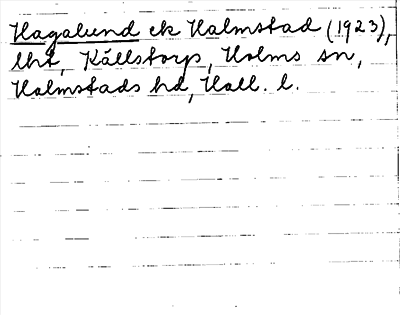 Hagalund ek Halmstad (1923),
lht, Källstorp, Holms sn,
Halmstads hd, Hall. l.